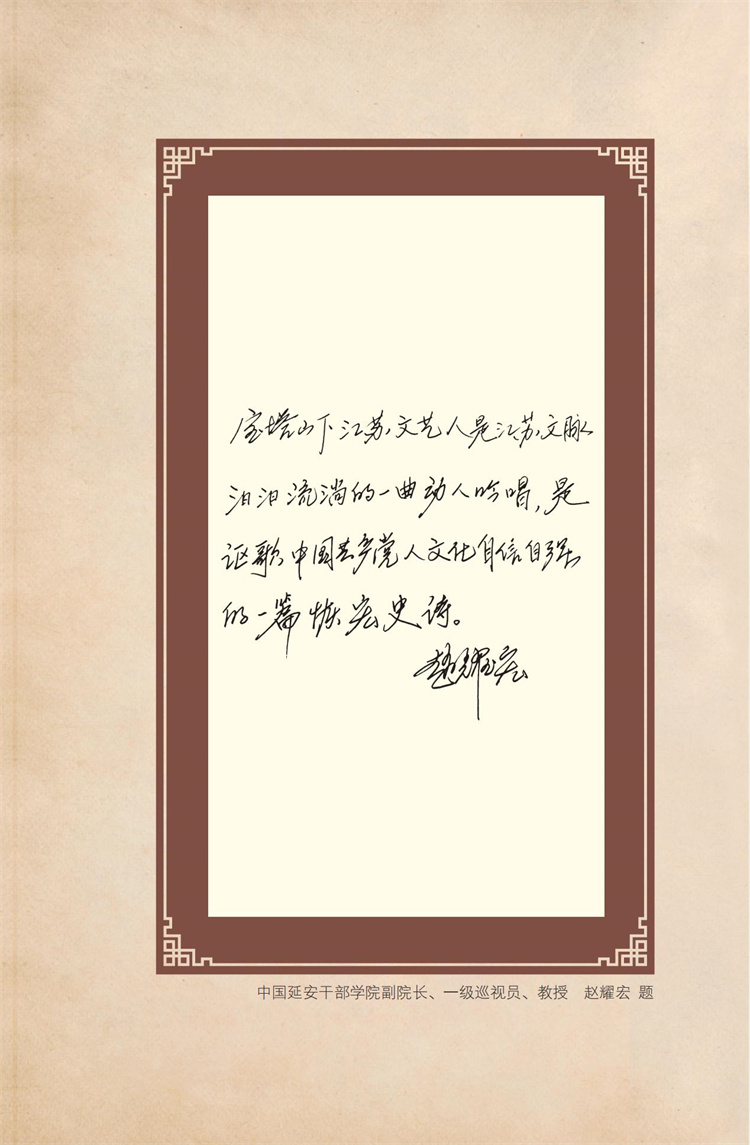 宝塔山下江苏文艺人是江苏文脉
汩汩流淌的一曲动人吟唱，是
讴歌中国共产党人文化自信自强
的一篇恢宏史诗。
赵耀宏
中国延安干部学院副院长、一级巡视员、教授 赵耀宏 题